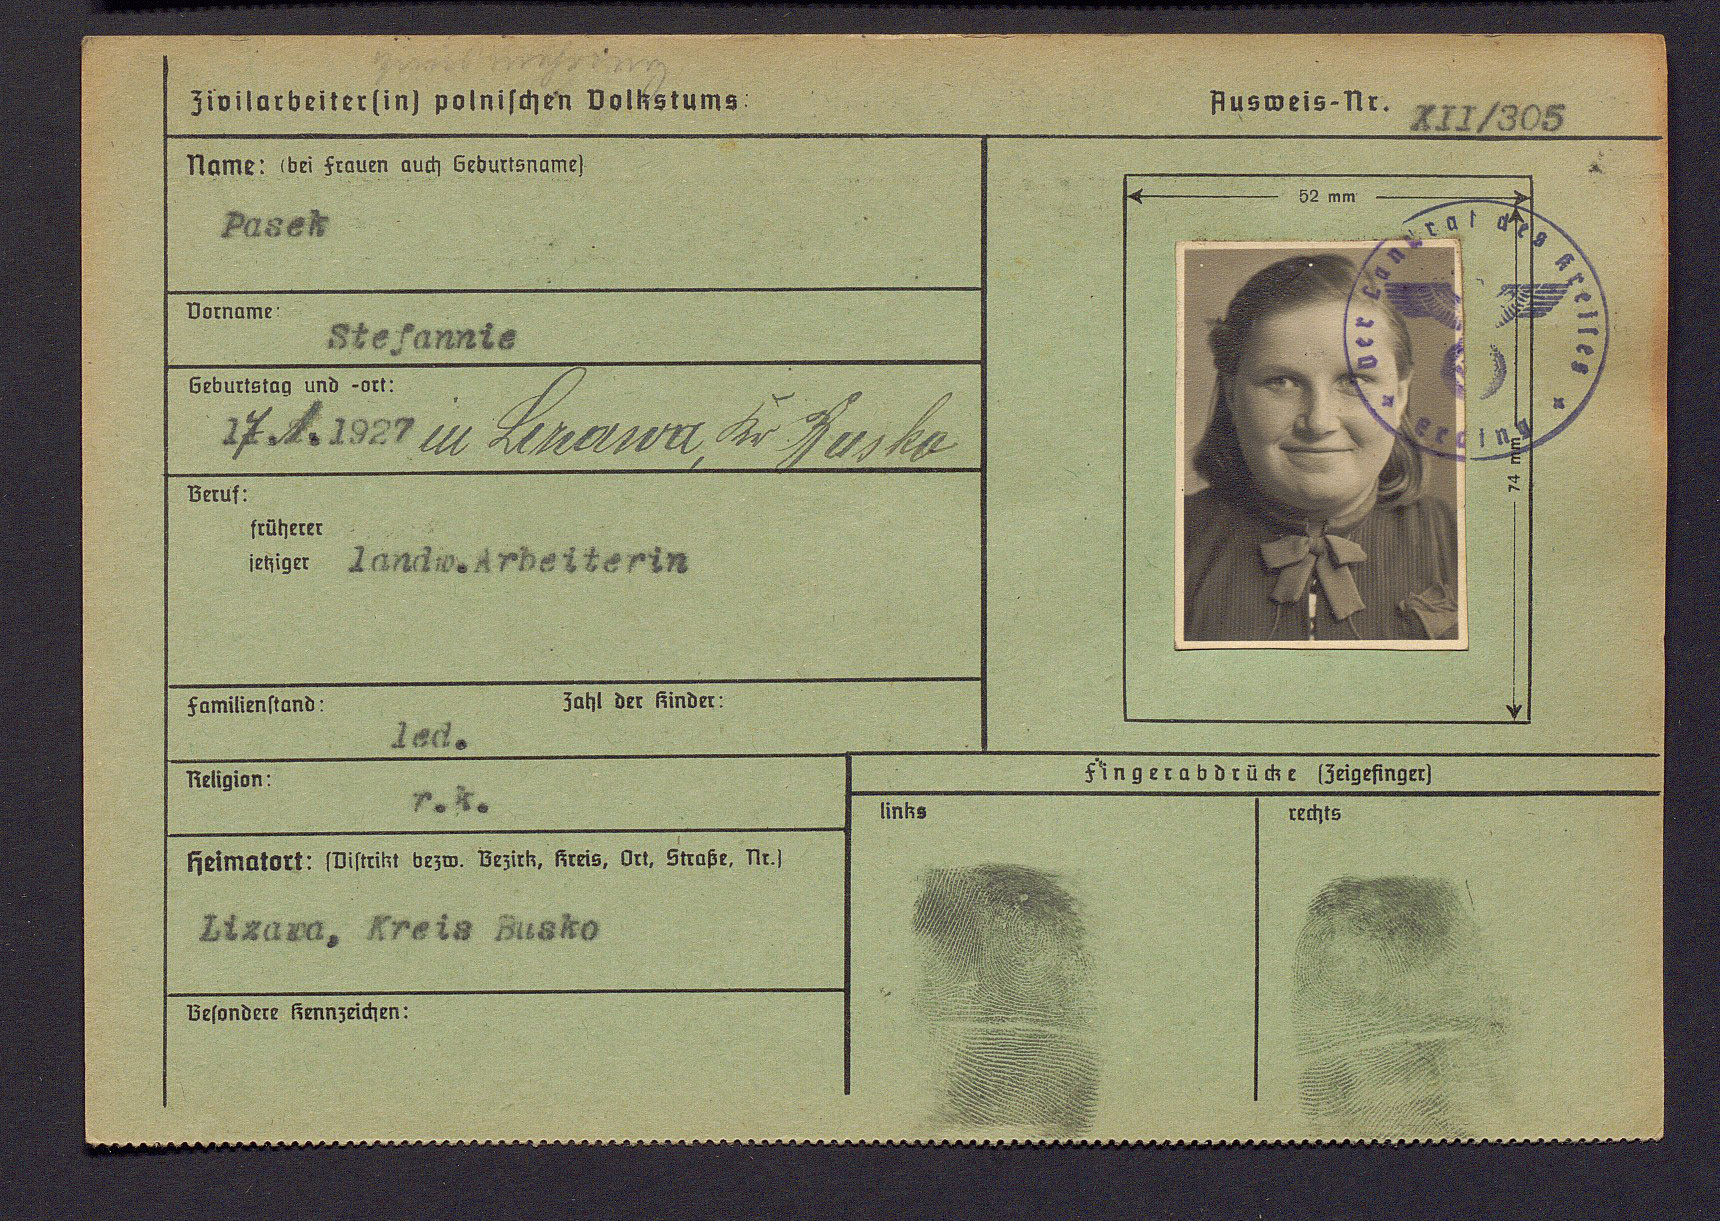 Zivilarbeiter(in) polnischen Volkstums:
Ausweis-Nr. XII/305
Name: (bei Frauen auch Geburtsname)
Pasek
Vorname:
Stefannie
Geburtstag und -ort:
17.1.1927 in Lizawa, Kr Busko
Beruf:
früherer
jetziger landw.Arbeiterin
Familienstand: Zahl der Kinder:
led.
Religion:
r.k.
Heimatort: (Distrikt bezw. Bezirk, Kreis, Ort, Straße, Nr.)
Lizawa, Kreis Busko
Besondere Kennzeichen:
52 mm
74 mm
Der Landrat des Kreises
Erding
Fingerabdrücke (Zeigefinger)
links rechts